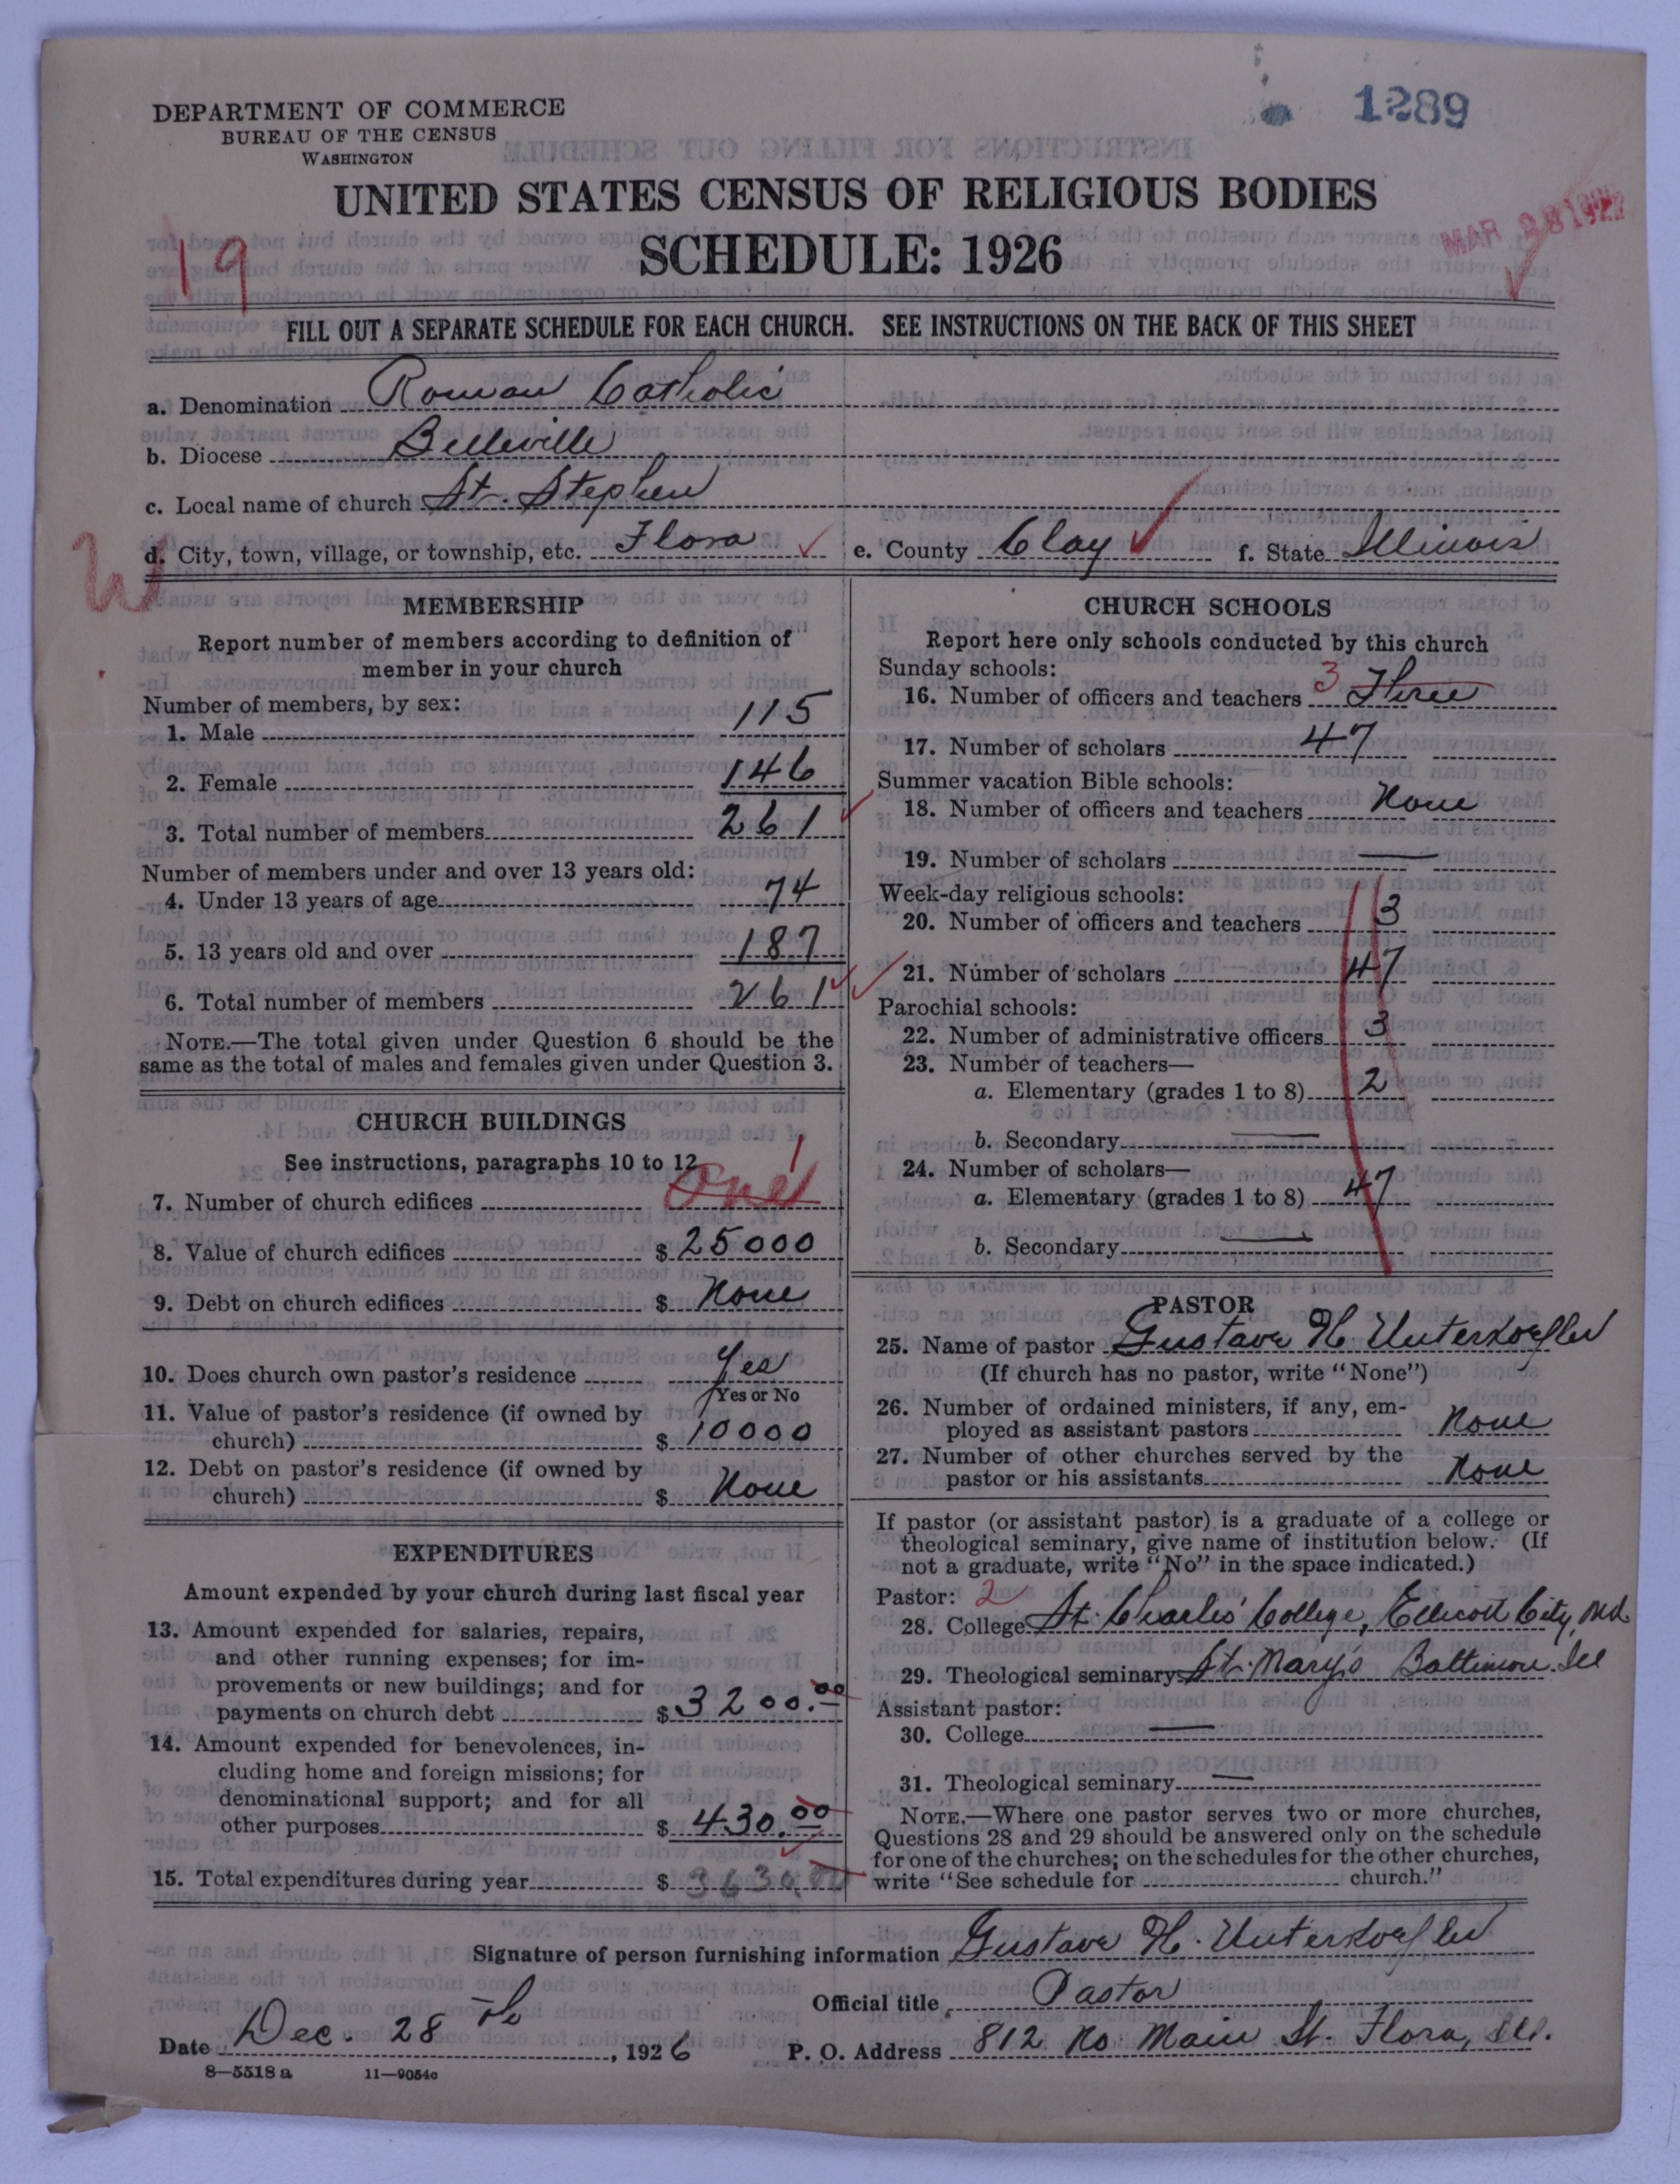 1289
DEPARTMENT OF COMMERCE
BUREAU OF THE CENSUS
WASHINGTON
UNITED STATES CENSUS OF RELIGIOUS BODIES
SCHEDULE: 1926
19
MAR 28 1927
FILL OUT A SEPARATE SCHEDULE FOR EACH CHURCH. SEE INSTRUCTIONS ON THE BACK OF THIS SHEET
a. Denomination Roman Catholic
b. Diocese Belleville
c. Local name of church St. Stephen
d. City, town, village, or township, etc. Flora e. County Clay f. State Illinois
W
MEMBERSHIP
Report number of members according to definition of
member in your church
Number of members, by sex:
1. Male 115
2. Female 146
3. Total number of members 261
Number of members under and over 13 years old:
4. Under 13 years of age 74
5. 13 years old and over 187
6. Total number of members 261
NOTE.—The total given under Question 6 should be the
same as the total of males and females given under Question 3.
CHURCH BUILDINGS
See instructions, paragraphs 10 to 12
7. Number of church edifices One 1
8. Value of church edifices $ 25000
9. Debt on church edifices $ None
10. Does church own pastor's residence Yes
Yes or No
11. Value of pastor's residence (if owned by
church) $ 10000
12. Debt on pastor's residence (if owned by
church) $ None
EXPENDITURES
Amount expended by your church during last fiscal year
13. Amount expended for salaries, repairs,
and other running expenses; for im-
provements or new buildings; and for
payments on church debt $ 3200.00
14. Amount expended for benevolences, in-
cluding home and foreign missions; for
denominational support; and for all
other purposes $ 430.00
15. Total expenditures during year $ 3630.00
CHURCH SCHOOLS
Report here only schools conducted by this church
Sunday schools:
16. Number of officers and teachers 3 Three
17. Number of scholars 47
Summer vacation Bible schools:
18. Number of officers and teachers None
19. Number of scholars —
Week-day religious schools:
20. Number of officers and teachers 3
21. Number of scholars 47
Parochial schools:
22. Number of administrative officers 3
23. Number of teachers—
a. Elementary (grades 1 to 8) 2
b. Secondary —
24. Number of scholars—
a. Elementary (grades 1 to 8) 47
b. Secondary —
PASTOR
25. Name of pastor Gustave H Unterkoefler
(If church has no pastor, write "None")
26. Number of ordained ministers, if any, em-
ployed as assistant pastors None
27. Number of other churches served by the
pastor or his assistants None
If pastor (or assistant pastor) is a graduate of a college or
theological seminary, give name of institution below. (If
not a graduate, write "No" in the space indicated.)
Pastor: 2
28. College St. Charles' College, Ellicott City, Md
29. Theological seminary St. Mary's Baltimore
Assistant pastor:
30. College —
31. Theological seminary —
NOTE.—Where one pastor serves two or more churches,
Questions 28 and 29 should be answered only on the schedule
for one of the churches; on the schedules for the other churches,
write "See schedule for church."
Signature of person furnishing information Gustave H. Unterkoefler
Official title Pastor
Date Dec. 28th, 1926 P. O. Address 812 No Main St. Flora, Ill.
8—5518 a 11—9054c